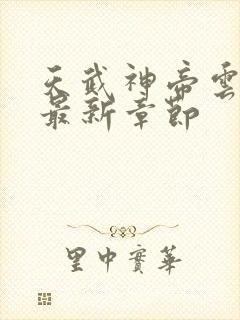 天武神帝雲
最新章節
里中實華